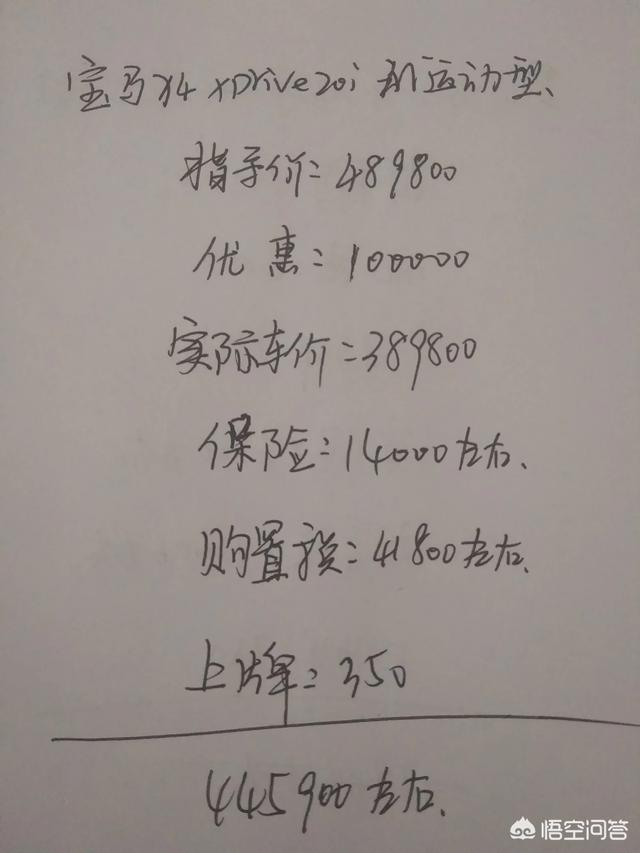 宝马X4 xDrive20i M运动型、
指导价=489800
优惠=100000
实际车价=389800
保险=14000左右.
购置税=41800左右.
上牌=350
445900左右.
悟空问答